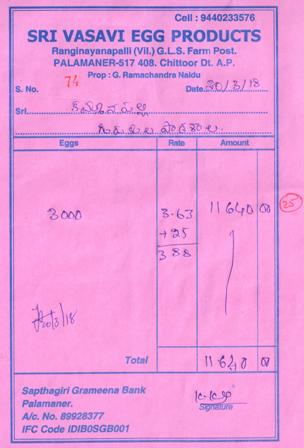 Cell : 9440233576
SRI VASAVI EGG PRODUCTS
Ranginayanapalli (Vil.) G.L.S. Farm Post.
PALAMANER-517 408. Chittoor Dt. A.P.
Prop : G. Ramachandra Naidu
S. No. 74 Date 20/3/18
Sri
Eggs Rate Amount
3000 3.63 11640 00
+ 25
3 88
25
20/3/18
Total 11640 00
Sapthagiri Grameena Bank
Palamaner.
A/c. No. 89928377
IFC Code IDIB0SGB001
Signature